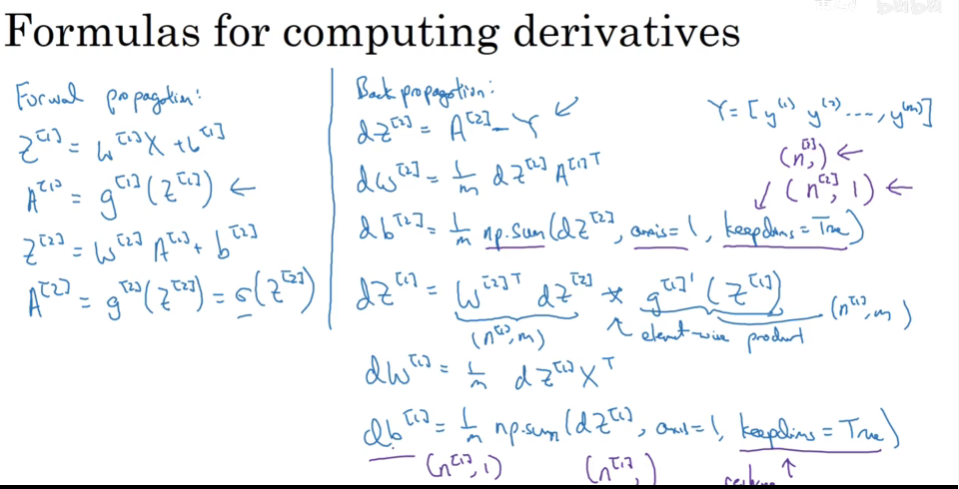 Formulas for computing derivatives
Forward propagation:
Z^[1] = W^[1]X + b^[1]
A^[1] = g^[1](Z^[1]) ←
Z^[2] = W^[2]A^[1] + b^[2]
A^[2] = g^[2](Z^[2]) = σ(Z^[2])
Back propagation:
dZ^[2] = A^[2] - Y ↙
dW^[2] = 1/m dZ^[2] A^[1]T
db^[2] = 1/m np.sum(dZ^[2], axis=1, keepdims=True)
dZ^[1] = W^[2]T dZ^[2] * g^[1]'(Z^[1])
(n^[1], m) ↑ element-wise product (n^[1], m)
dW^[1] = 1/m dZ^[1]X^T
db^[1] = 1/m np.sum(dZ^[1], axis=1, keepdims=True)
(n^[1], 1) (n^[1],) ↑
Y = [y^(1) y^(2) ..., y^(m)]
(n^[2],) ←
↓ (n^[2], 1) ←